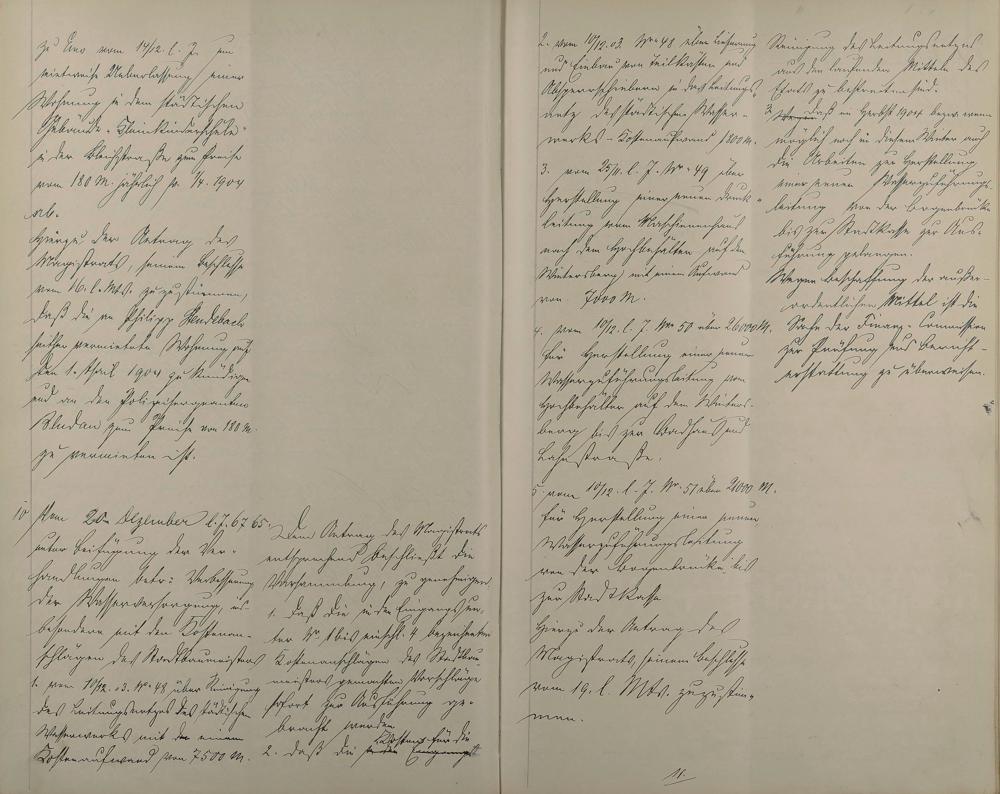 zu Emo vom 14/12. l. J. um
mietweise Ueberlassung einer
Wohnung in dem städtischen
Gebäude "Kleinkinderschule"
in der Bleichstraße zum Preise
von 180 M. jährlich p. 1/4. 1904
ab.
Hierzu der Antrag des
Magistrats, seinem Beschlusse
vom 16. l. Mts. zuzustimmen,
daß die an Philipp Hendebach
seither vermietete Wohnung auf
den 1. April 1904 zu kündigen
und an den Polizeisergeanten
zum Preise von 180 M.
zu vermieten ist.
10 Vom 20. Dezember l. J. 67 65.
unter Beifügung der Ver-
handlungen betr: Verbesserung
der Wasserversorgung, ins
besondere mit den Kostenan-
schlägen des Stadtbaumeisters
1. vom 10/12. 03. Nr. 48 über Reinigung
des Leitungsnetzes des städtischen
Wasserwerks mit einem
Kostenaufwand von 7500 M.
Dem Antrag des Magistrats
entsprechend beschließt die
Versammlung, zu genehmigen
1. daß die in den Eingangs un-
ter Nr. 1 bis einschl. 4 bezeichneten
Kostenanschlägen des Stadtbau
meisters gemachten Vorschläge
sofort zur Ausführung ge-
bracht werden
2. daß die Kosten für die
2. vom 10/12. 03. Nr. 48 über Lieferung
und Einbau von Teilkästen und
Absperrschiebern in das Leitungs-
netz des städtischen Wasser-
werks - Kostenaufwand 1800 M.
3. vom 25/11. l. J. Nr. 49 über
Herstellung einer neuen Druck-
leitung vom Maschinenhaus
nach dem Hochbehälter auf dem
Wintersberg mit einem Aufwand
von 7000 M.
4. vom 10/12. l. J. Nr. 50 über 26000 M.
für Herstellung einer neuen
Wasserzuführungsleitung vom
Hochbehälter auf dem Winters-
berg bis zur Badhaus und
Lahnstraße.
5. vom 10/12. l. J. Nr. 51 über 21000 M.
für Herstellung einer neuen
Wasserzuführungsleitung
von der Bogenbrücke bis
zur Stadtkasse
Hierzu der Antrag des
Magistrats, seinem Beschlusse
vom 19. l. Mts. zuzustim-
men.
Reinigung des Leitungsnetzes
aus den laufenden Mitteln des
Etats zu bestreiten sind.
3. daß im Herbst 1904 bezw. wenn
möglich noch in diesem Winter auch
die Arbeiten zur Herstellung
einer neuen Wasserzuführungs-
leitung von der Bogenbrücke
bis zur Stadtkasse zur Aus-
führung gelangen.
Wegen Beschaffung der außer-
ordentlichen Mittel ist die
Sache der Finanz-Commission
zur Prüfung und Bericht-
erstattung zu überweisen.
11.